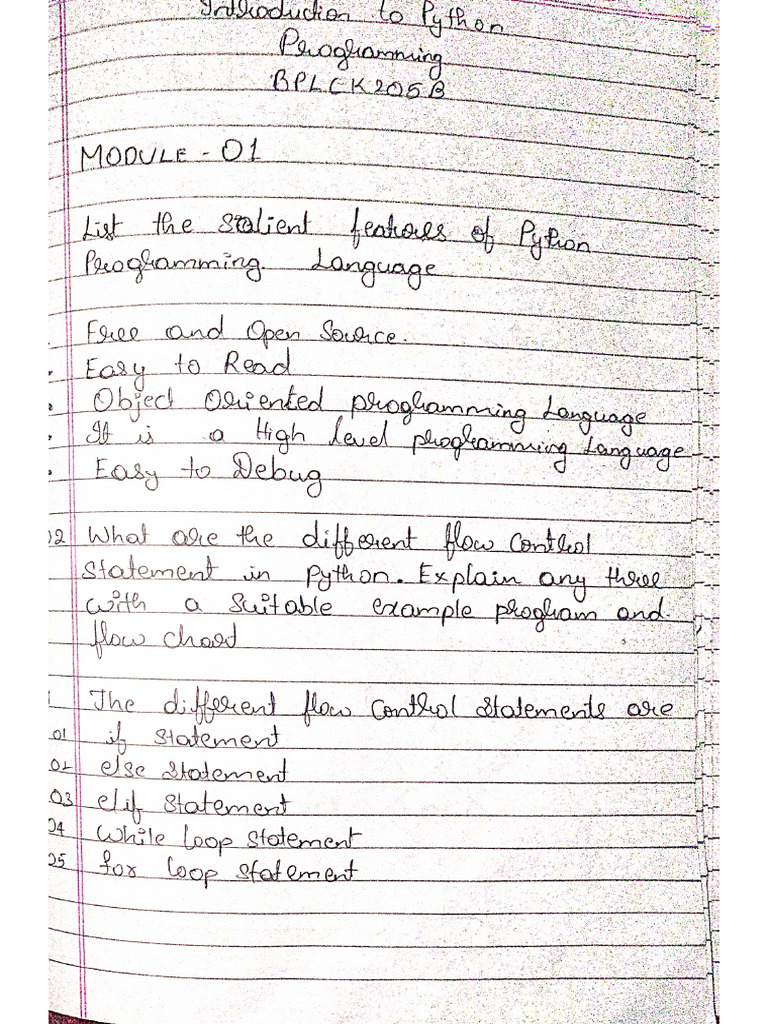 Introduction to Python
Programming
BPLCK205B
MODULE - 01
List the salient features of Python
Programming. Language
Free and Open Source.
Easy to Read
Object Oriented programming Language
It is a High level programming Language
Easy to Debug
02 What are the different flow control
statement in python. Explain any three
with a suitable example program and
flow chart
The different flow control statements are
01 if statement
02 else statement
03 elif statement
04 while loop statement
05 for loop statement